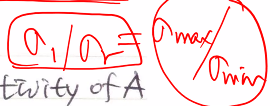 σ₁/σᵣ = σmax/σmin
tivity of A